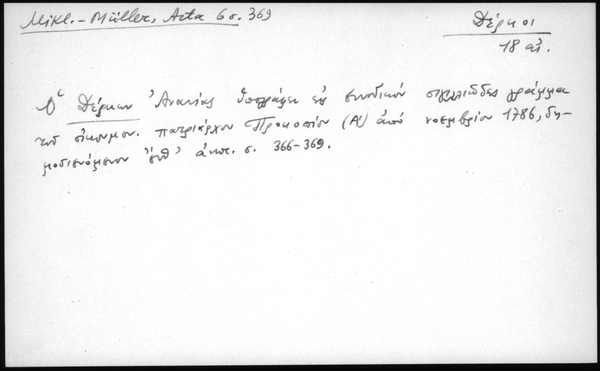 Mikl.-Müller, Acta 6 σ. 369
Δέρκοι
18 αἰ.
Ὁ Δέρκων Ἀνανίας ὑπογράφει εἰς συνοδικὸν σιγιλλιῶδες γράμμα
τοῦ οἰκουμ. πατριάρχου Προκοπίου (Α') ἀπὸ νοεμβρίου 1786, δη-
μοσιευόμενον ἐνθ' ἀνωτ. σ. 366-369.